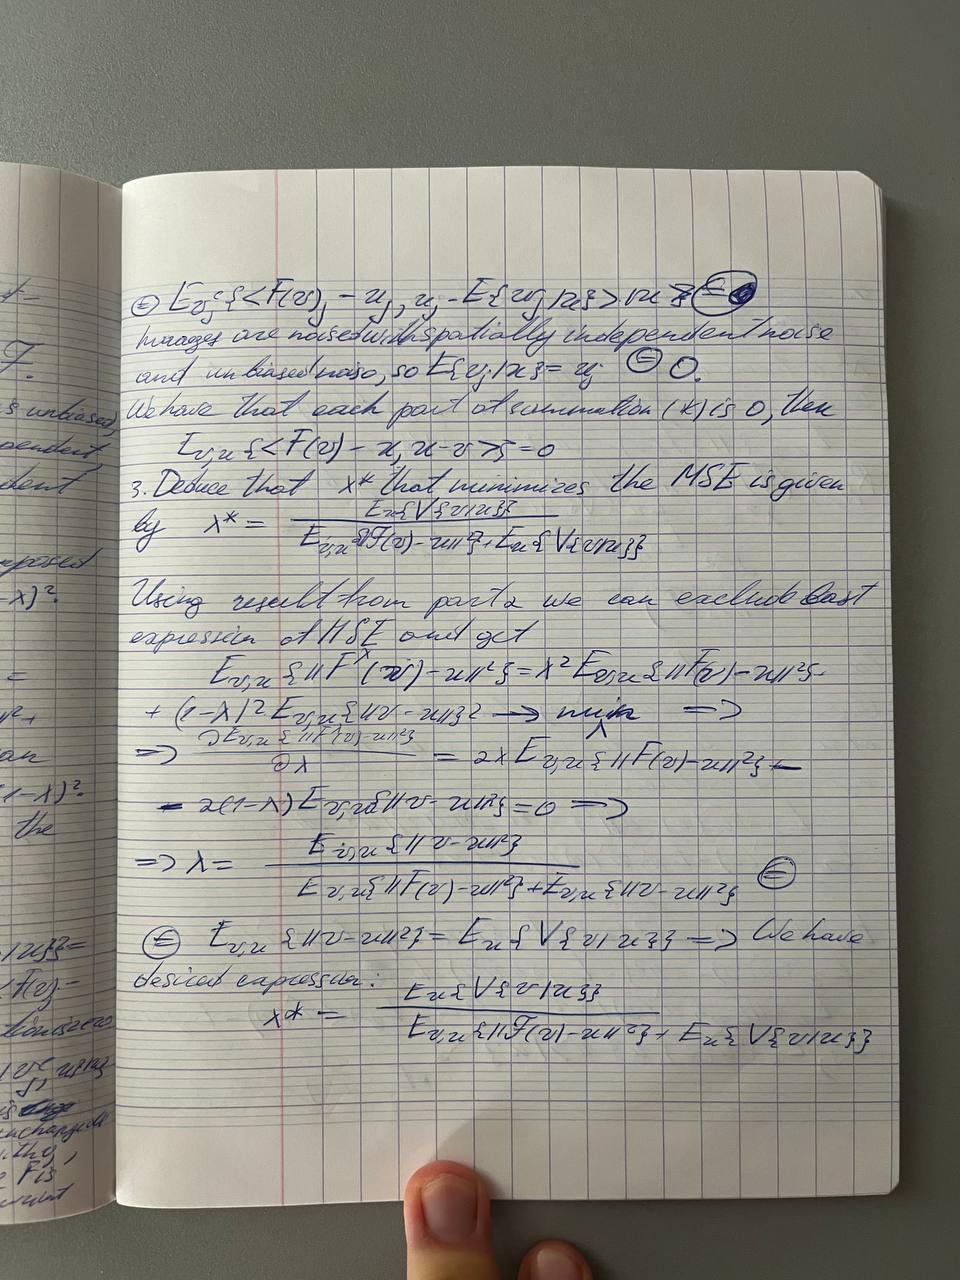 t-
F.
s unbiased,
pendent
dent
mposed
-λ)².
=
u²+
an
1-λ)².
the
|u}}=
<F(v)-
tion is zero
F is
⊜ E_{v_j^c}{<F(v)_j - u_j, u_j - E{v_j|u}>|u} ⊜
Images are noised with spatially independent noise
and unbiased noise, so E{v_j|u} = u_j ⊜ 0.
We have that each part of summation (*) is 0, then
E_{v,u}{<F(v) - u, u-v>} = 0
3. Deduce that λ* that minimizes the MSE is given
by λ* = E_u{V{v|u}} / E_{v,u}{||F(v)-u||²}+E_u{V{v|u}}
Using result from part 2 we can exclude last
expression of MSE and get
E_{v,u}{||F^λ(v)-u||²} = λ² E_{v,u}{||F(v)-u||²}+
+ (1-λ)² E_{v,u}{||v-u||²} → min_λ =>
=> ∂E_{v,u}{||F^λ(v)-u||²} / ∂λ = 2λ E_{v,u}{||F(v)-u||²} -
- 2(1-λ)E_{v,u}{||v-u||²} = 0 =>
=> λ = E_{v,u}{||v-u||²} / E_{v,u}{||F(v)-u||²}+E_{v,u}{||v-u||²} ⊜
⊜ E_{v,u}{||v-u||²} = E_u{V{v|u}} => We have
desired expression:
λ* = E_u{V{v|u}} / E_{v,u}{||F(v)-u||²} + E_u{V{v|u}}